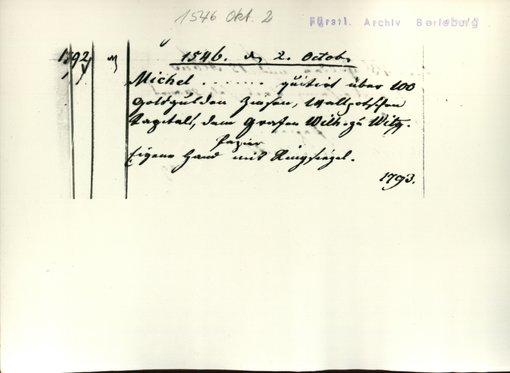 1546 Okt. 2
Fürstl. Archiv Berleburg
1546. d. 2. Octob.
Michel ........ quitirt über 100
Goldgulden Zinsen,
Capital, dem Grafen Wilh. zu Witg.
Papier
Eigene Hand mit Ringsiegel.
1793.